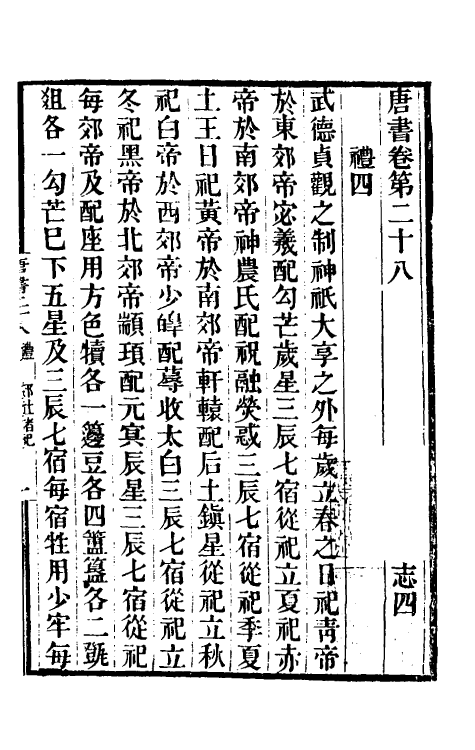 唐書卷第二十八　志四
禮四
武德貞觀之制神祇大享之外每歲立春之日祀靑帝
於東郊帝宓羲配勾芒歲星三辰七宿從祀立夏祀赤
帝於南郊帝神農氏配祝融熒惑三辰七宿從祀季夏
土王日祀黃帝於南郊帝軒轅配后土鎭星從祀立秋
祀白帝於西郊帝少皡配蓐收太白三辰七宿從祀立
冬祀黑帝於北郊帝顓頊配元冥辰星三辰七宿從祀
每郊帝及配座用方色犢各一籩豆各四簠簋各二㽅
俎各一勾芒已下五星及三辰七宿每宿牲用少牢每
唐書二八　禮　郊社諸祀　一